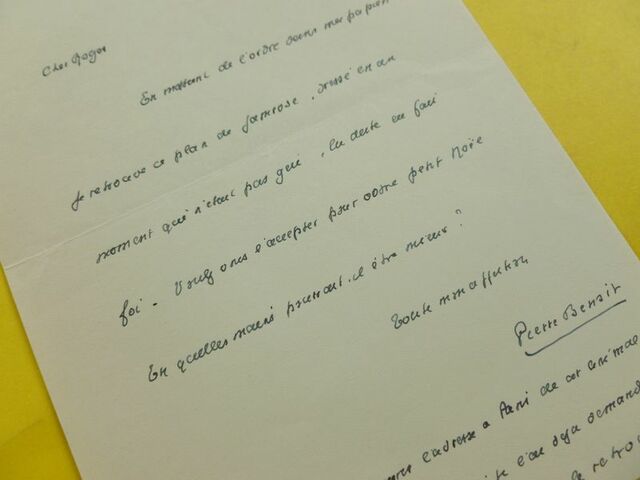 Cher Roger
En mettant de l'ordre dans mes papiers
je retrouve ce plan de Jamrose, dressé en un
moment qui n'était pas gai, la date en fait
foi - Voulez vous l'accepter pour votre petit Noël
En quelles mains pourrait-il être mieux ?
toute mon affection
Pierre Benoit
l'adresse a Paris de cet animal
l'ai deja demand
retro